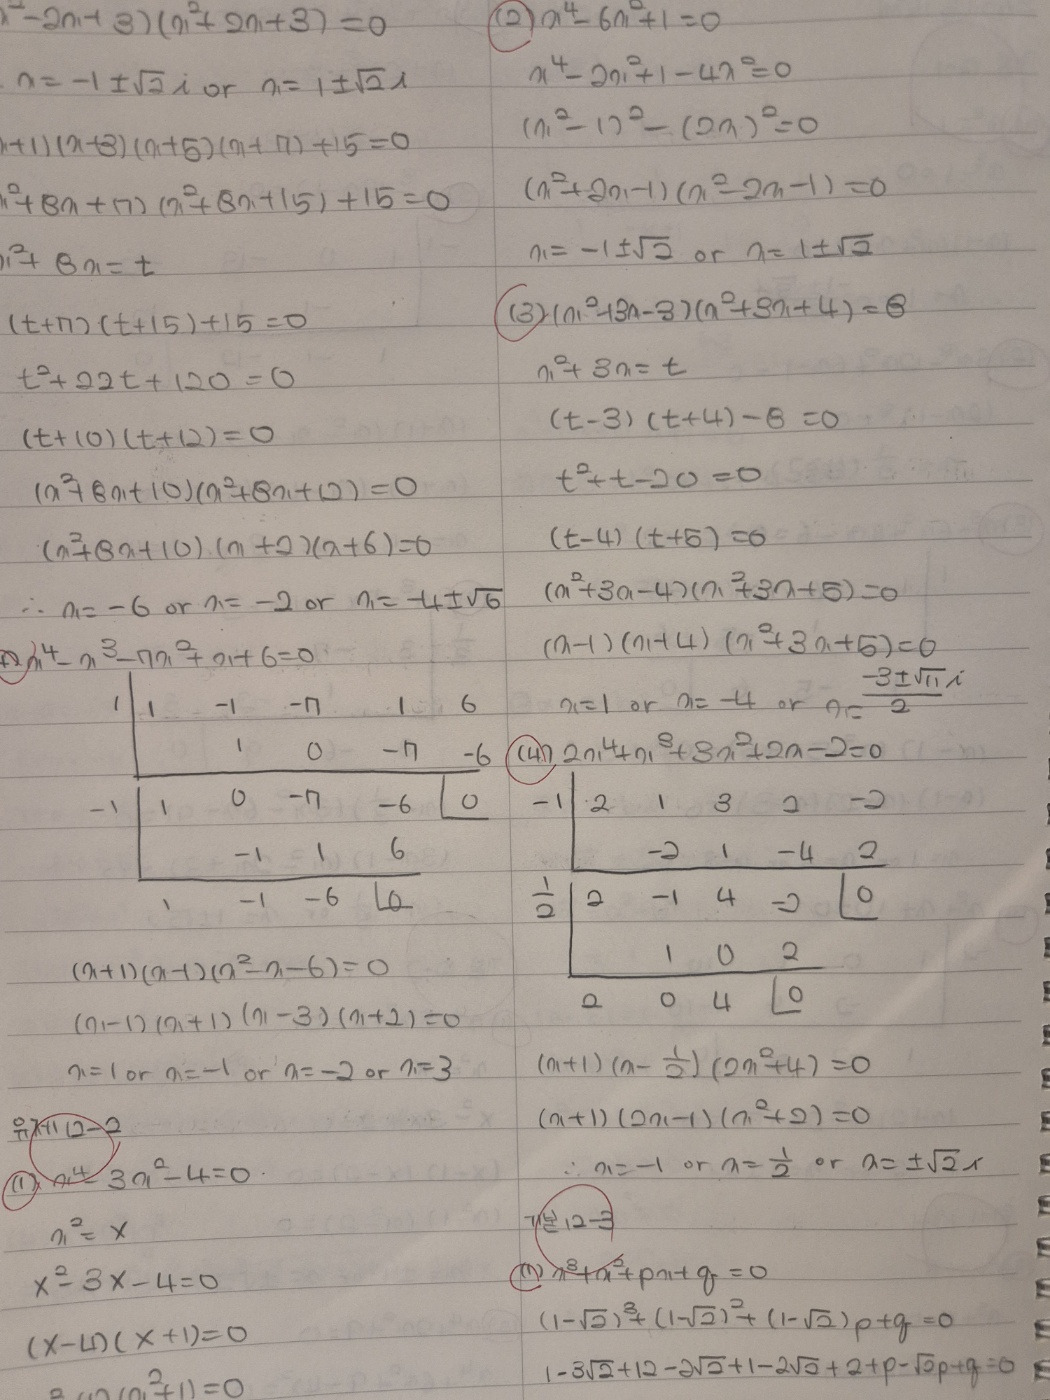 x²-2x+3)(x²+2x+3)=0
x=-1±√2 i or x=1±√2 i
x+1)(x+3)(x+5)(x+7)+15=0
x²+8x+7)(x²+8x+15)+15=0
x²+8x=t
(t+7)(t+15)+15=0
t²+22t+120=0
(t+10)(t+12)=0
(x²+8x+10)(x²+8x+12)=0
(x²+8x+10)(x+2)(x+6)=0
∴ x=-6 or x=-2 or x=-4±√6
x⁴-x³-7x²+x+6=0
1 | 1 -1 -7 1 6
1 0 -7 -6
-1 | 1 0 -7 -6 | 0
-1 1 6
1 -1 -6 | 0
(x+1)(x-1)(x²-x-6)=0
(x-1)(x+1)(x-3)(x+2)=0
x=1 or x=-1 or x=-2 or x=3
유제12-2
(1) x⁴-3x²-4=0
x²=X
X²-3X-4=0
(X-4)(X+1)=0
(x²+1)=0
(2) x⁴-6x²+1=0
x⁴-2x²+1-4x²=0
(x²-1)²-(2x)²=0
(x²+2x-1)(x²-2x-1)=0
x=-1±√2 or x=1±√2
(3) (x²+3x-3)(x²+3x+4)=8
x²+3x=t
(t-3)(t+4)-8=0
t²+t-20=0
(t-4)(t+5)=0
(x²+3x-4)(x²+3x+5)=0
(x-1)(x+4)(x²+3x+5)=0
x=1 or x=-4 or x=(-3±√11 i)/2
(4) 2x⁴+x³+3x²+2x-2=0
-1 | 2 1 3 2 -2
-2 1 -4 2
1/2 | 2 -1 4 -2 | 0
1 0 2
2 0 4 | 0
(x+1)(x-1/2)(2x²+4)=0
(x+1)(2x-1)(x²+2)=0
∴ x=-1 or x=1/2 or x=±√2 i
기본12-3
(1) x³+x²+px+q=0
(1-√2)³+(1-√2)²+(1-√2)p+q=0
1-3√2+12-2√2+1-2√2+2+p-√2p+q=0